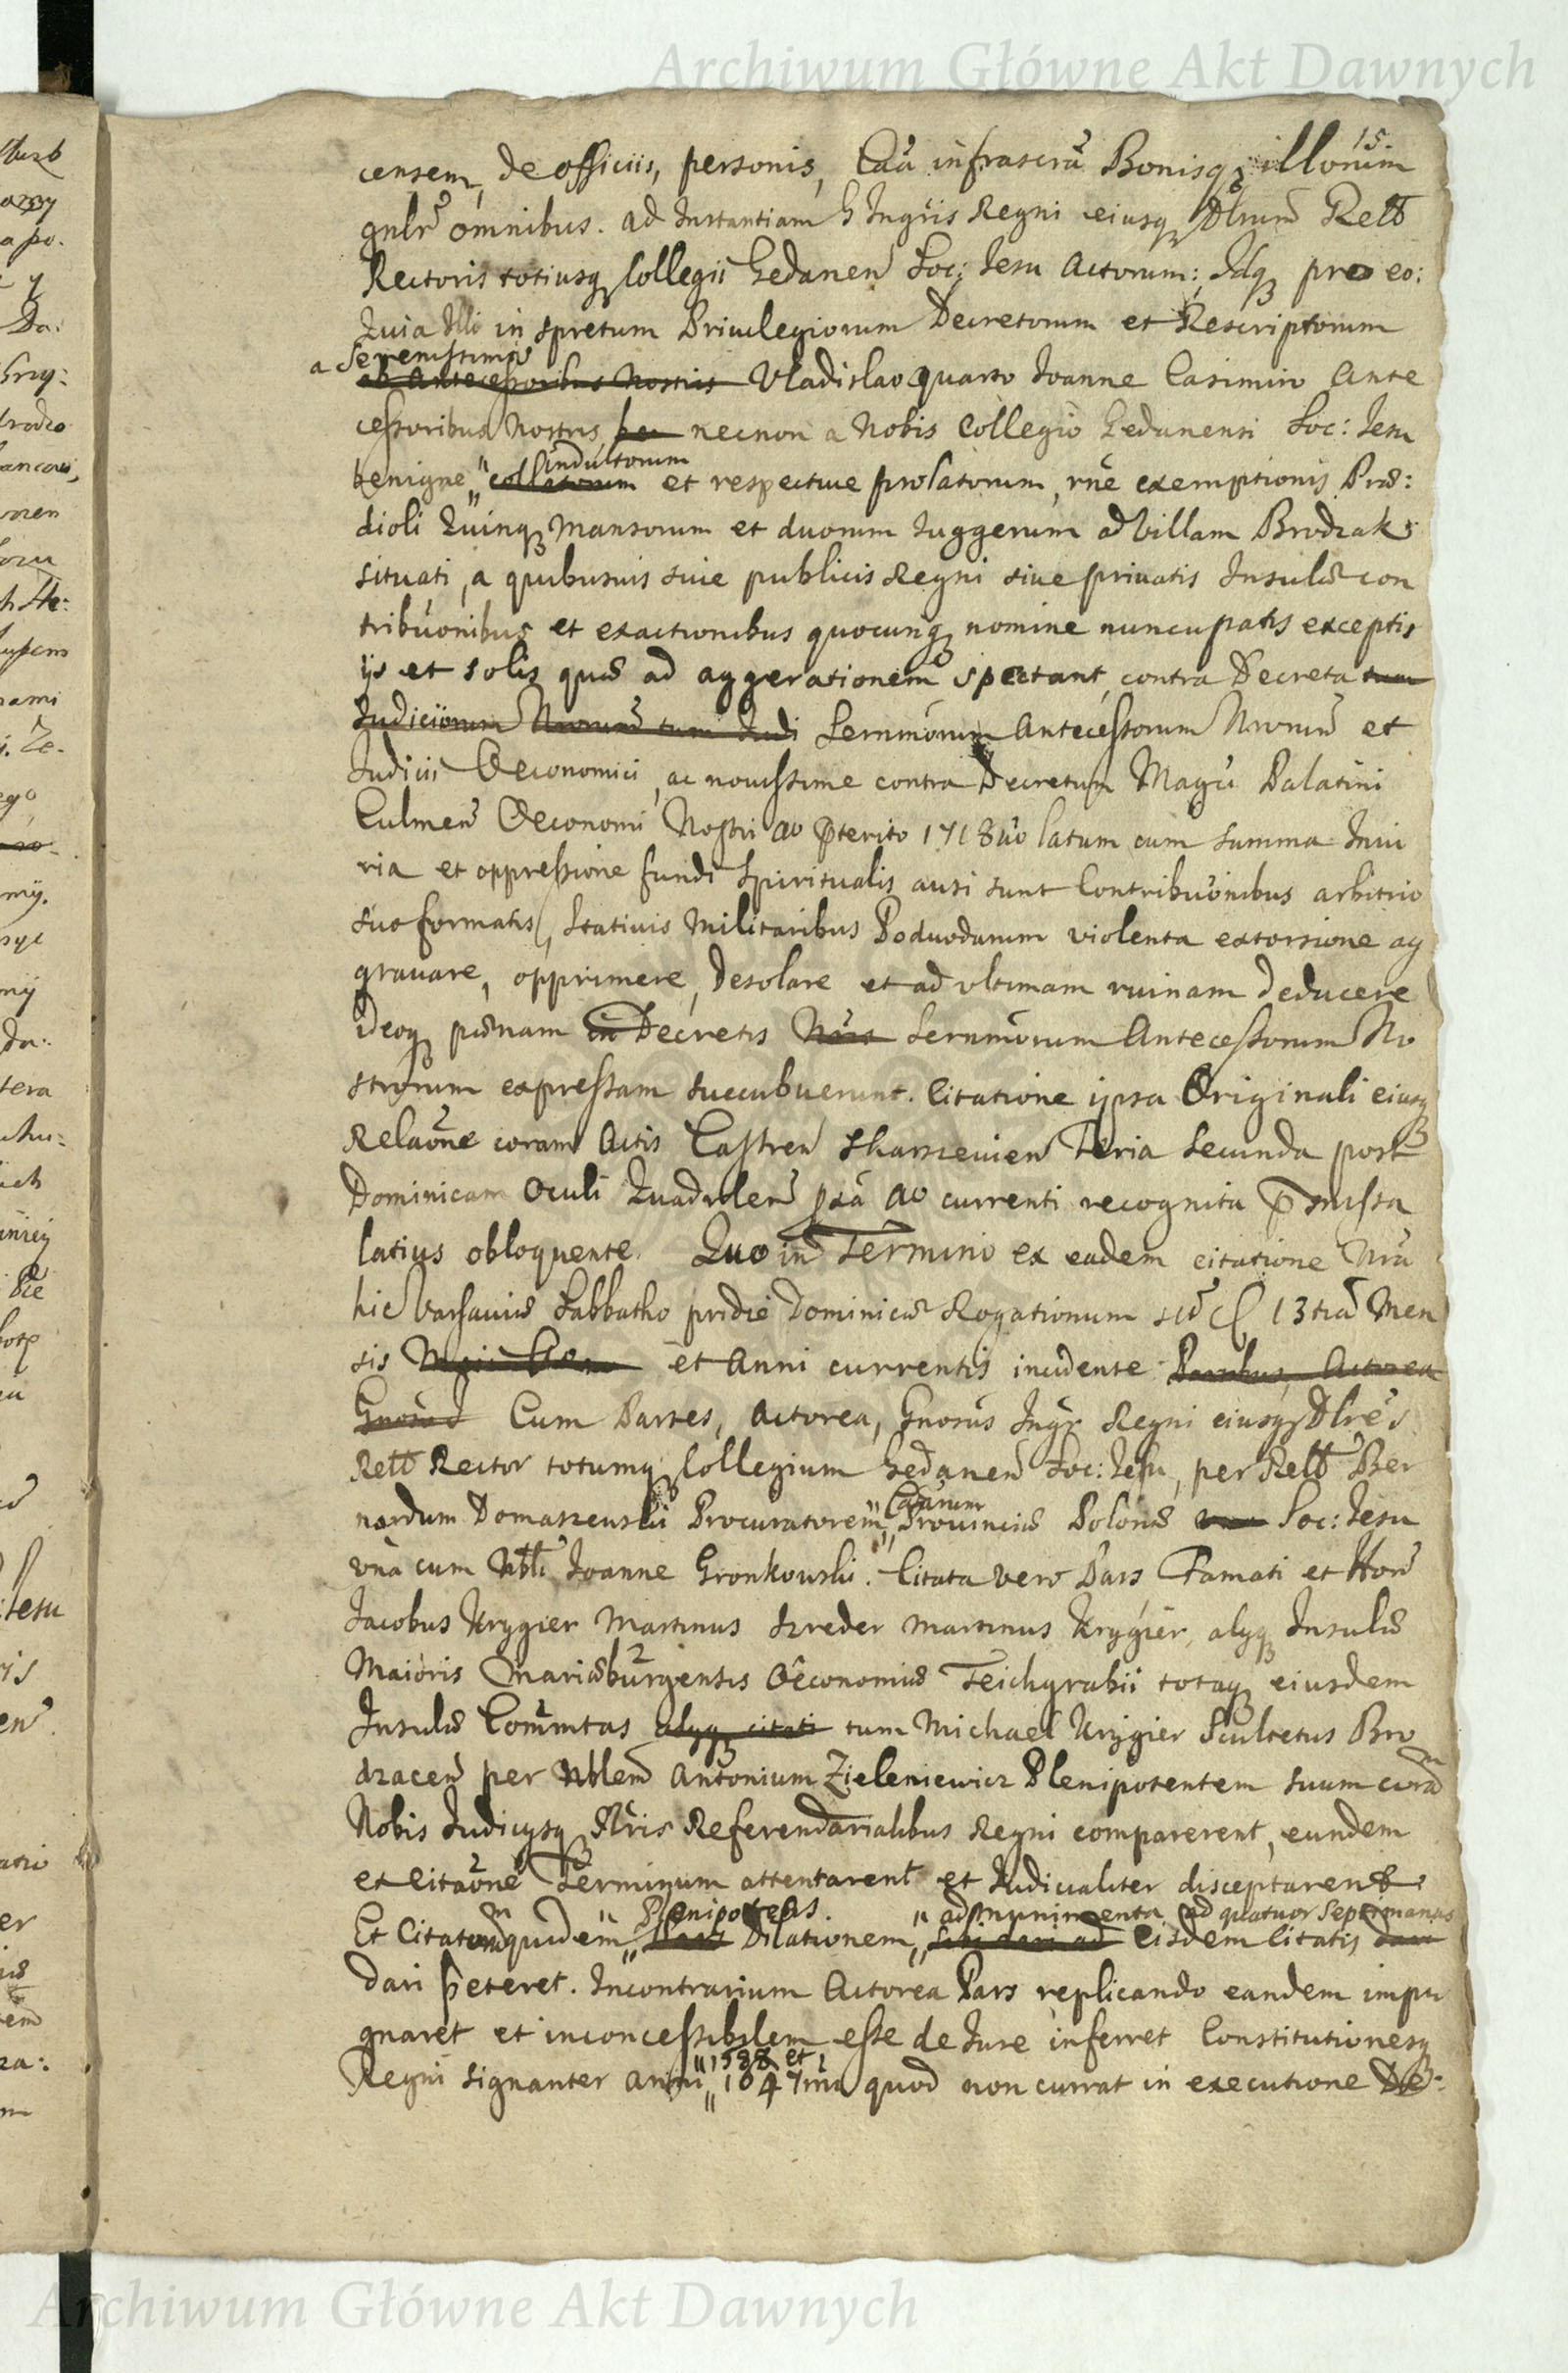 Archiwum Główne Akt Dawnych
15
censem, de officiis, personis, Caã infrascrã Bonisq illorum
gnlr omnibus. ad Instantiam G Ingtis Regni eiusq Dlrum Rell
Rectoris totiusq Collegii Gedanen Soc: Jesu Actorum: Idq pro eo:
Quia Illi in spretum Priuilegiorum Decretorum et Rescriptorum
a Serenissimis
ab Antecessoribus Nostris Vladislao quarto Joanne Casimiro Ante
cessoribus Nostris, necnon a Nobis Collegio Gedanensi Soc: Jesu
indultorum
benigne collatorum et respectiue prolatorum, rne exemptionis Præ:
dioli Quinq Mansorum et duorum Juggerum ad Villam Brodzak
situati, a quibusuis siue publicis Regni siue priuatis Insulæ con
tribuonibus et exactionibus quocunq nomine nuncupatis exceptis
ijs et solis quæ ad aggerationem spectant, contra Decreta tum
Judiciorum Nrorum tum Judi Sernmorum Antecessorum Nrorum et
Judicii Oeconomici, ac nouissime contra Decretum Magci Palatini
Culmen Oeconomi Nostri ao pterito 1718uo latum cum summa Iniu
ria et oppressione fundi Spiritualis ausi sunt Contribuonibus arbitrio
suo formatis, Statiuis Militaribus Poduodarum violenta extorsione ag
grauare, opprimere, desolare et ad vltimam ruinam deducere
ideoq pænam in Decretis Nris Sernmorum Antecessorum No
strorum expressam succubuerunt. Citatione ipsa Originali eiusq
Relaone coram Actis Castren Skarszeuien Feria Secunda post
Dominicam Oculi Quadrlem pxa ao currenti recognita pmissa
latius obloquente. Quo in Termino ex eadem citatione Nra
hic Varsauiæ Sabbatho pridie Dominicæ Rogationum 13tia Men
sis Maii et Anni currentis incidente Partibus, Actorea
Gnosus Cum Partes, Actorea, Gnosus Ingr Regni eiusq Dlres
Rell Rector totumq Collegium Gedanen Soc: Jesu, per Rell Ber
Caarum
nardum Domaszewski Procuratorem Prouinciæ Polonæ Soc: Jesu
vna cum Nbli Joanne Gronkowski. Citata vero Pars Famati et Hon
Jacobus Krygier Martinus Szreder Martinus Krygier, alyq Insulæ
Maioris Mariæburgensis Oeconomiæ Teichgrabii totaq eiusdem
Insulæ Commtas alyq citati tum Michael Krygier Scultetus Bro
dzacen per Nblem Antonium Zieleniewicz Plenipotentem suum coram
Nobis Judicysq Nris Referendarialibus Regni comparerent, eundem
et Citaone Terminum attentarent et Judicialiter disceptarent
Plenipotens. ad Munimenta ad quatuor Septimanas
Et Citatorum quidem Pars Dilationem sibi dari ad eisdem Citatis dari
dari peteret. Incontrarium Actorea Pars replicando eandem impu
gnaret et inconcessibilem esse de Iure inferret Constitutionesq
1588 et
Regni signanter anni 1647mi quod non currat in executione De:
Archiwum Główne Akt Dawnych